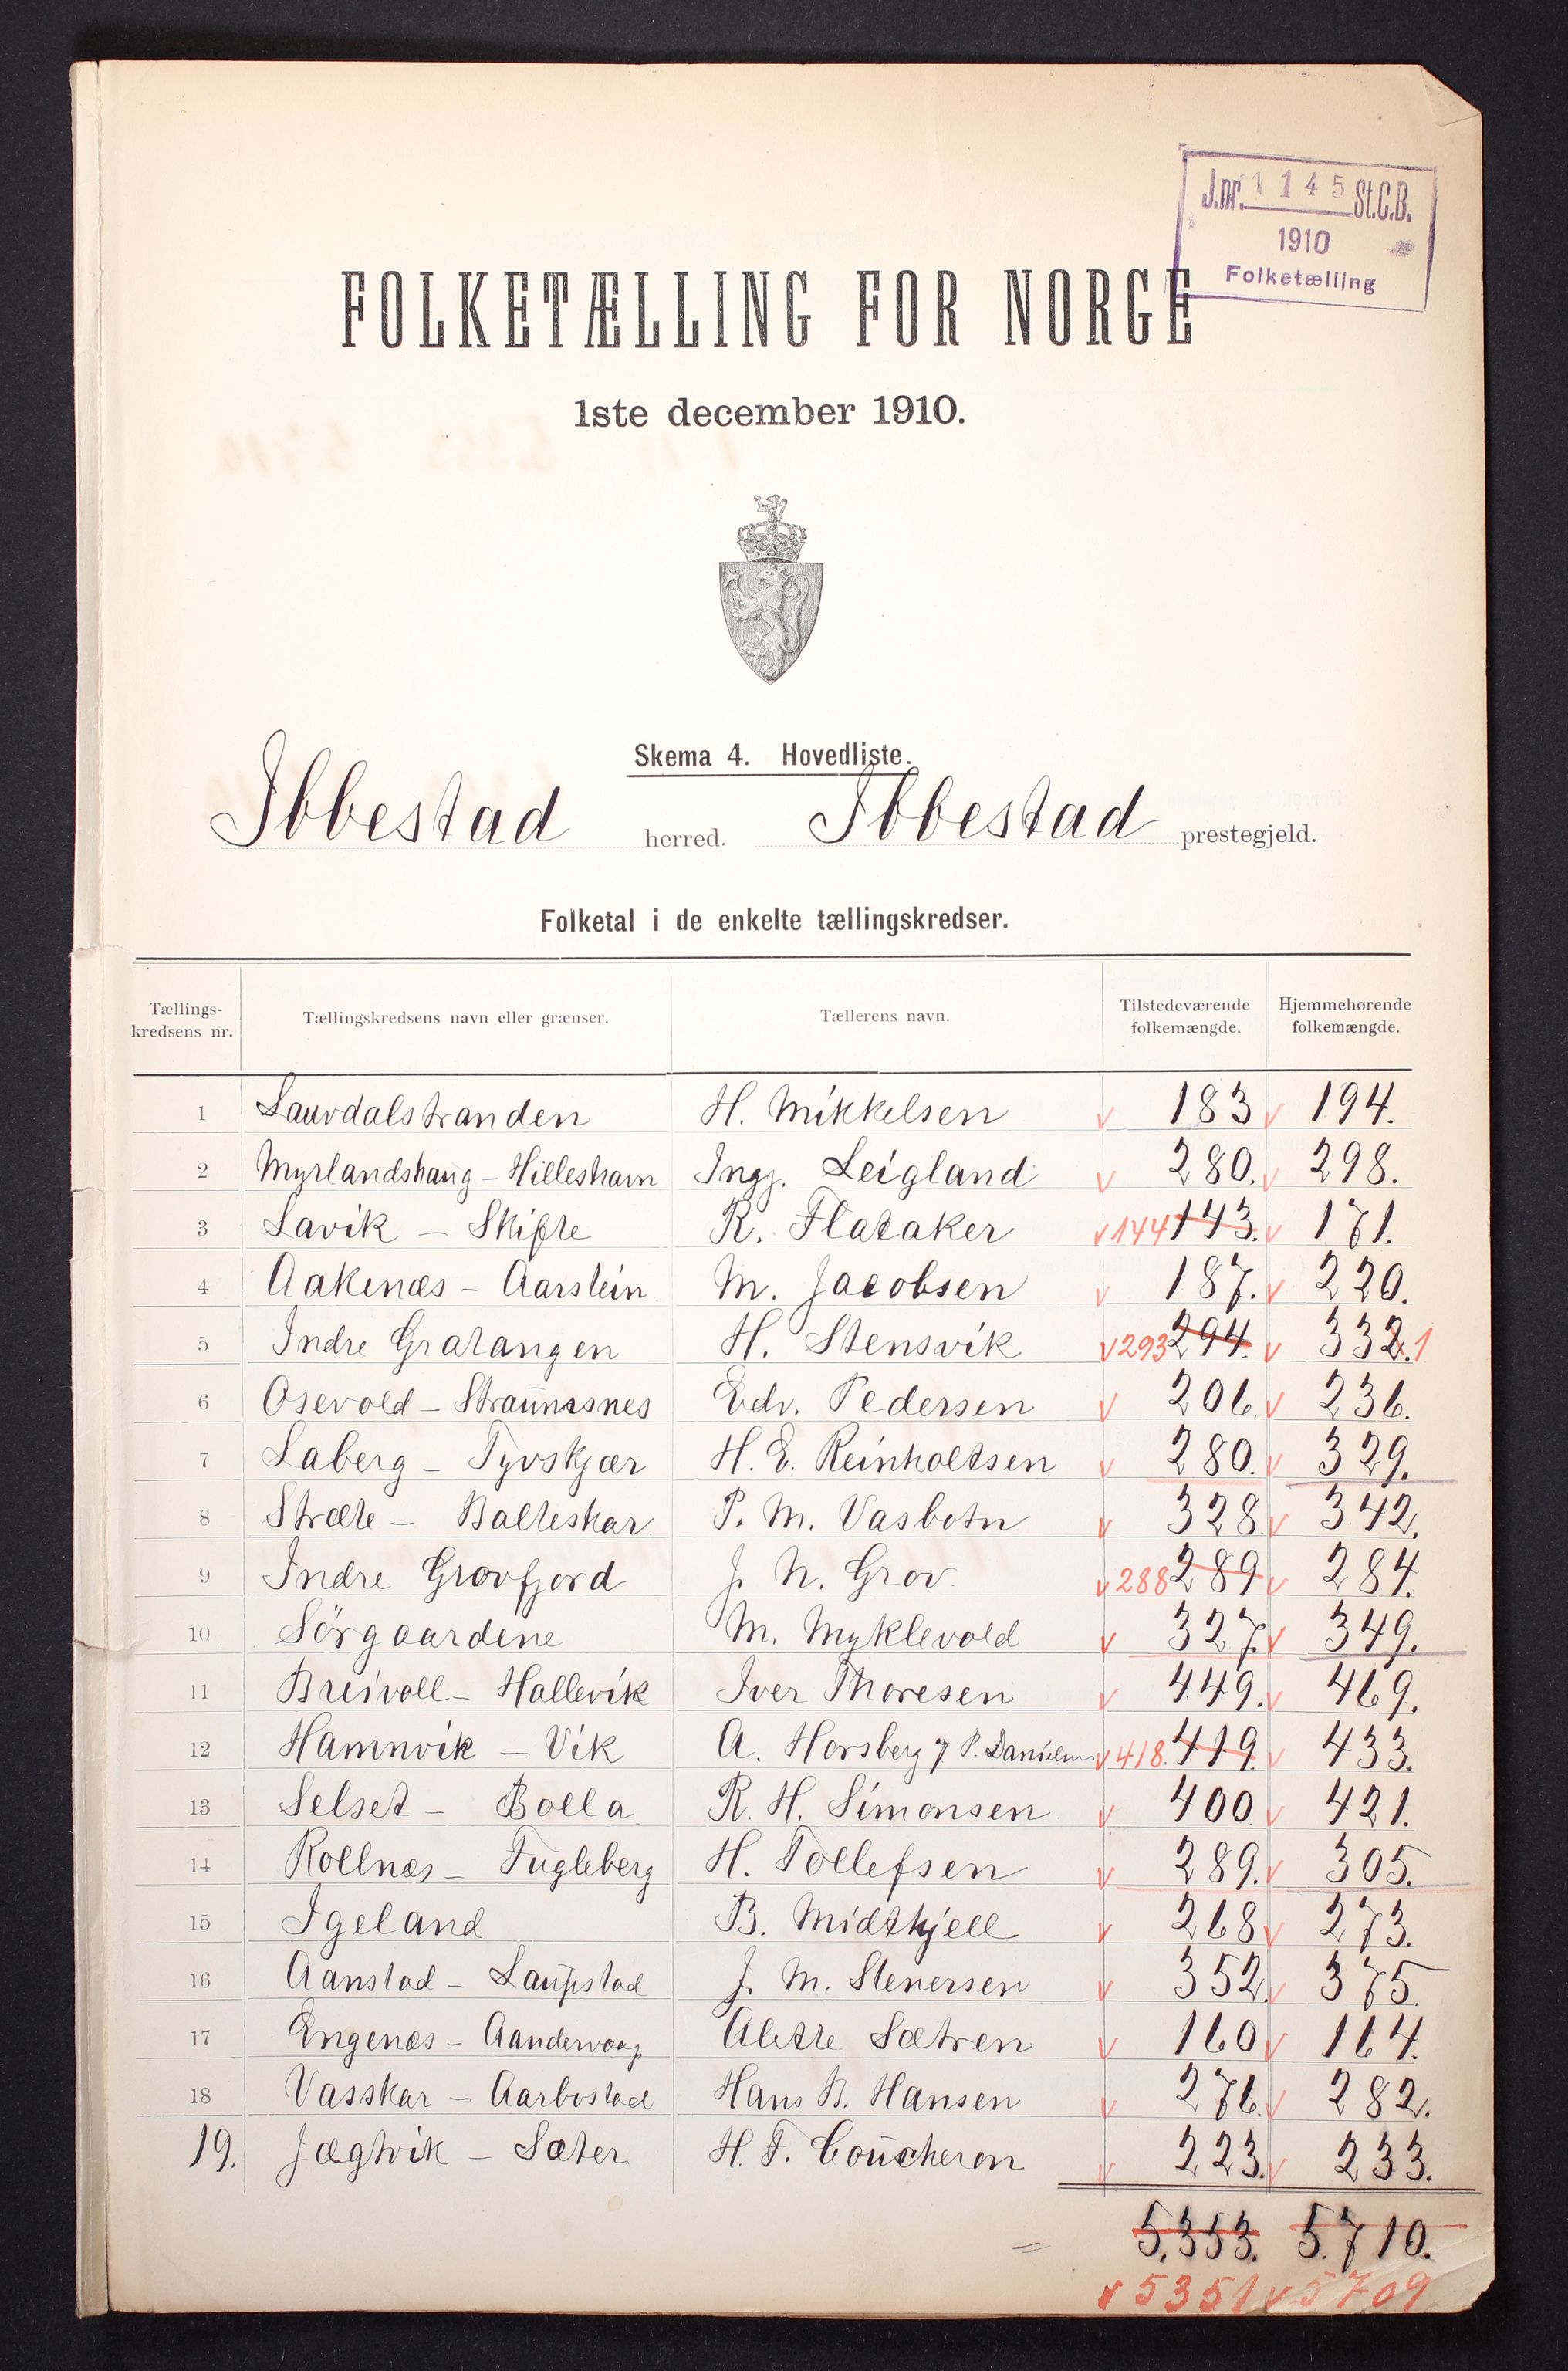 J.nr. 1145 St.C.B.
1910
Folketælling
FOLKETÆLLING FOR NORGE
1ste december 1910.
Skema 4. Hovedliste.
Ibbestad herred. Ibbestad prestegjeld.
Folketal i de enkelte tællingskredser.
Tællings-kredsens nr. Tællingskredsens navn eller grænser. Tællerens navn. Tilstedeværende folkemængde. Hjemmehørende folkemængde.
1 Lauvdalstranden H. Mikkelsen v 183 v 194.
2 Myrlandshaug - Hilleshavn Ingj. Leigland v 280. v 298.
3 Lavik - Skifte R. Flataker v 144 143. v 171.
4 Aakenæs - Aarstein M. Jacobsen v 187. v 220.
5 Indre Gratangen H. Stensvik v 293 294. v 332. 1
6 Osevold - Straumsnes Edv. Pedersen v 206. v 236.
7 Laberg - Tyvskjær H. E. Reinholtsen v 280. v 329.
8 Stræte - Balteskar P. M. Vasbotn v 328 v 342.
9 Indre Grovfjord J. N. Grov. v 288 289 v 284.
10 Sörgaardene M. Myklevold v 327. v 349.
11 Breivoll - Hallevik Iver Thoresen v 449. v 469.
12 Hamnvik - Vik A. Horsberg & P. Danielsen v 418. 419. v 433.
13 Selset - Bolla R. H. Simonsen v 400. v 421.
14 Rollnæs - Fugleberg H. Tollefsen v 289. v 305.
15 Igeland B. Midtkjell v 268 v 273.
16 Aanstad - Laupstad J. M. Stenersen v 352. v 375.
17 Engenæs - Aandervaag Alette Sætren v 160 v 164.
18 Vasskar - Aarbostad Hans B. Hansen v 276. v 282.
19. Jægtvik - Sæter H. F. Coucheron v 223. v 233.
= 5.353. 5.710.
v 5351 v 5709